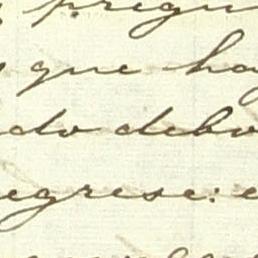 pregu
que ha
do debo
egrese: e